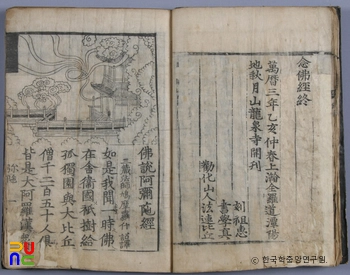 念佛經終
萬曆三年乙亥仲春上澣全羅道潭陽
地秋月山龍泉寺開刊
刻祖惠
書學真
勸化山人法連比丘
佛說阿彌陀經
如是我聞一時佛
在舍衛國祇樹給
孤獨園與大比丘
僧千二百五十人俱
皆是大阿羅漢
한국학중앙연구원